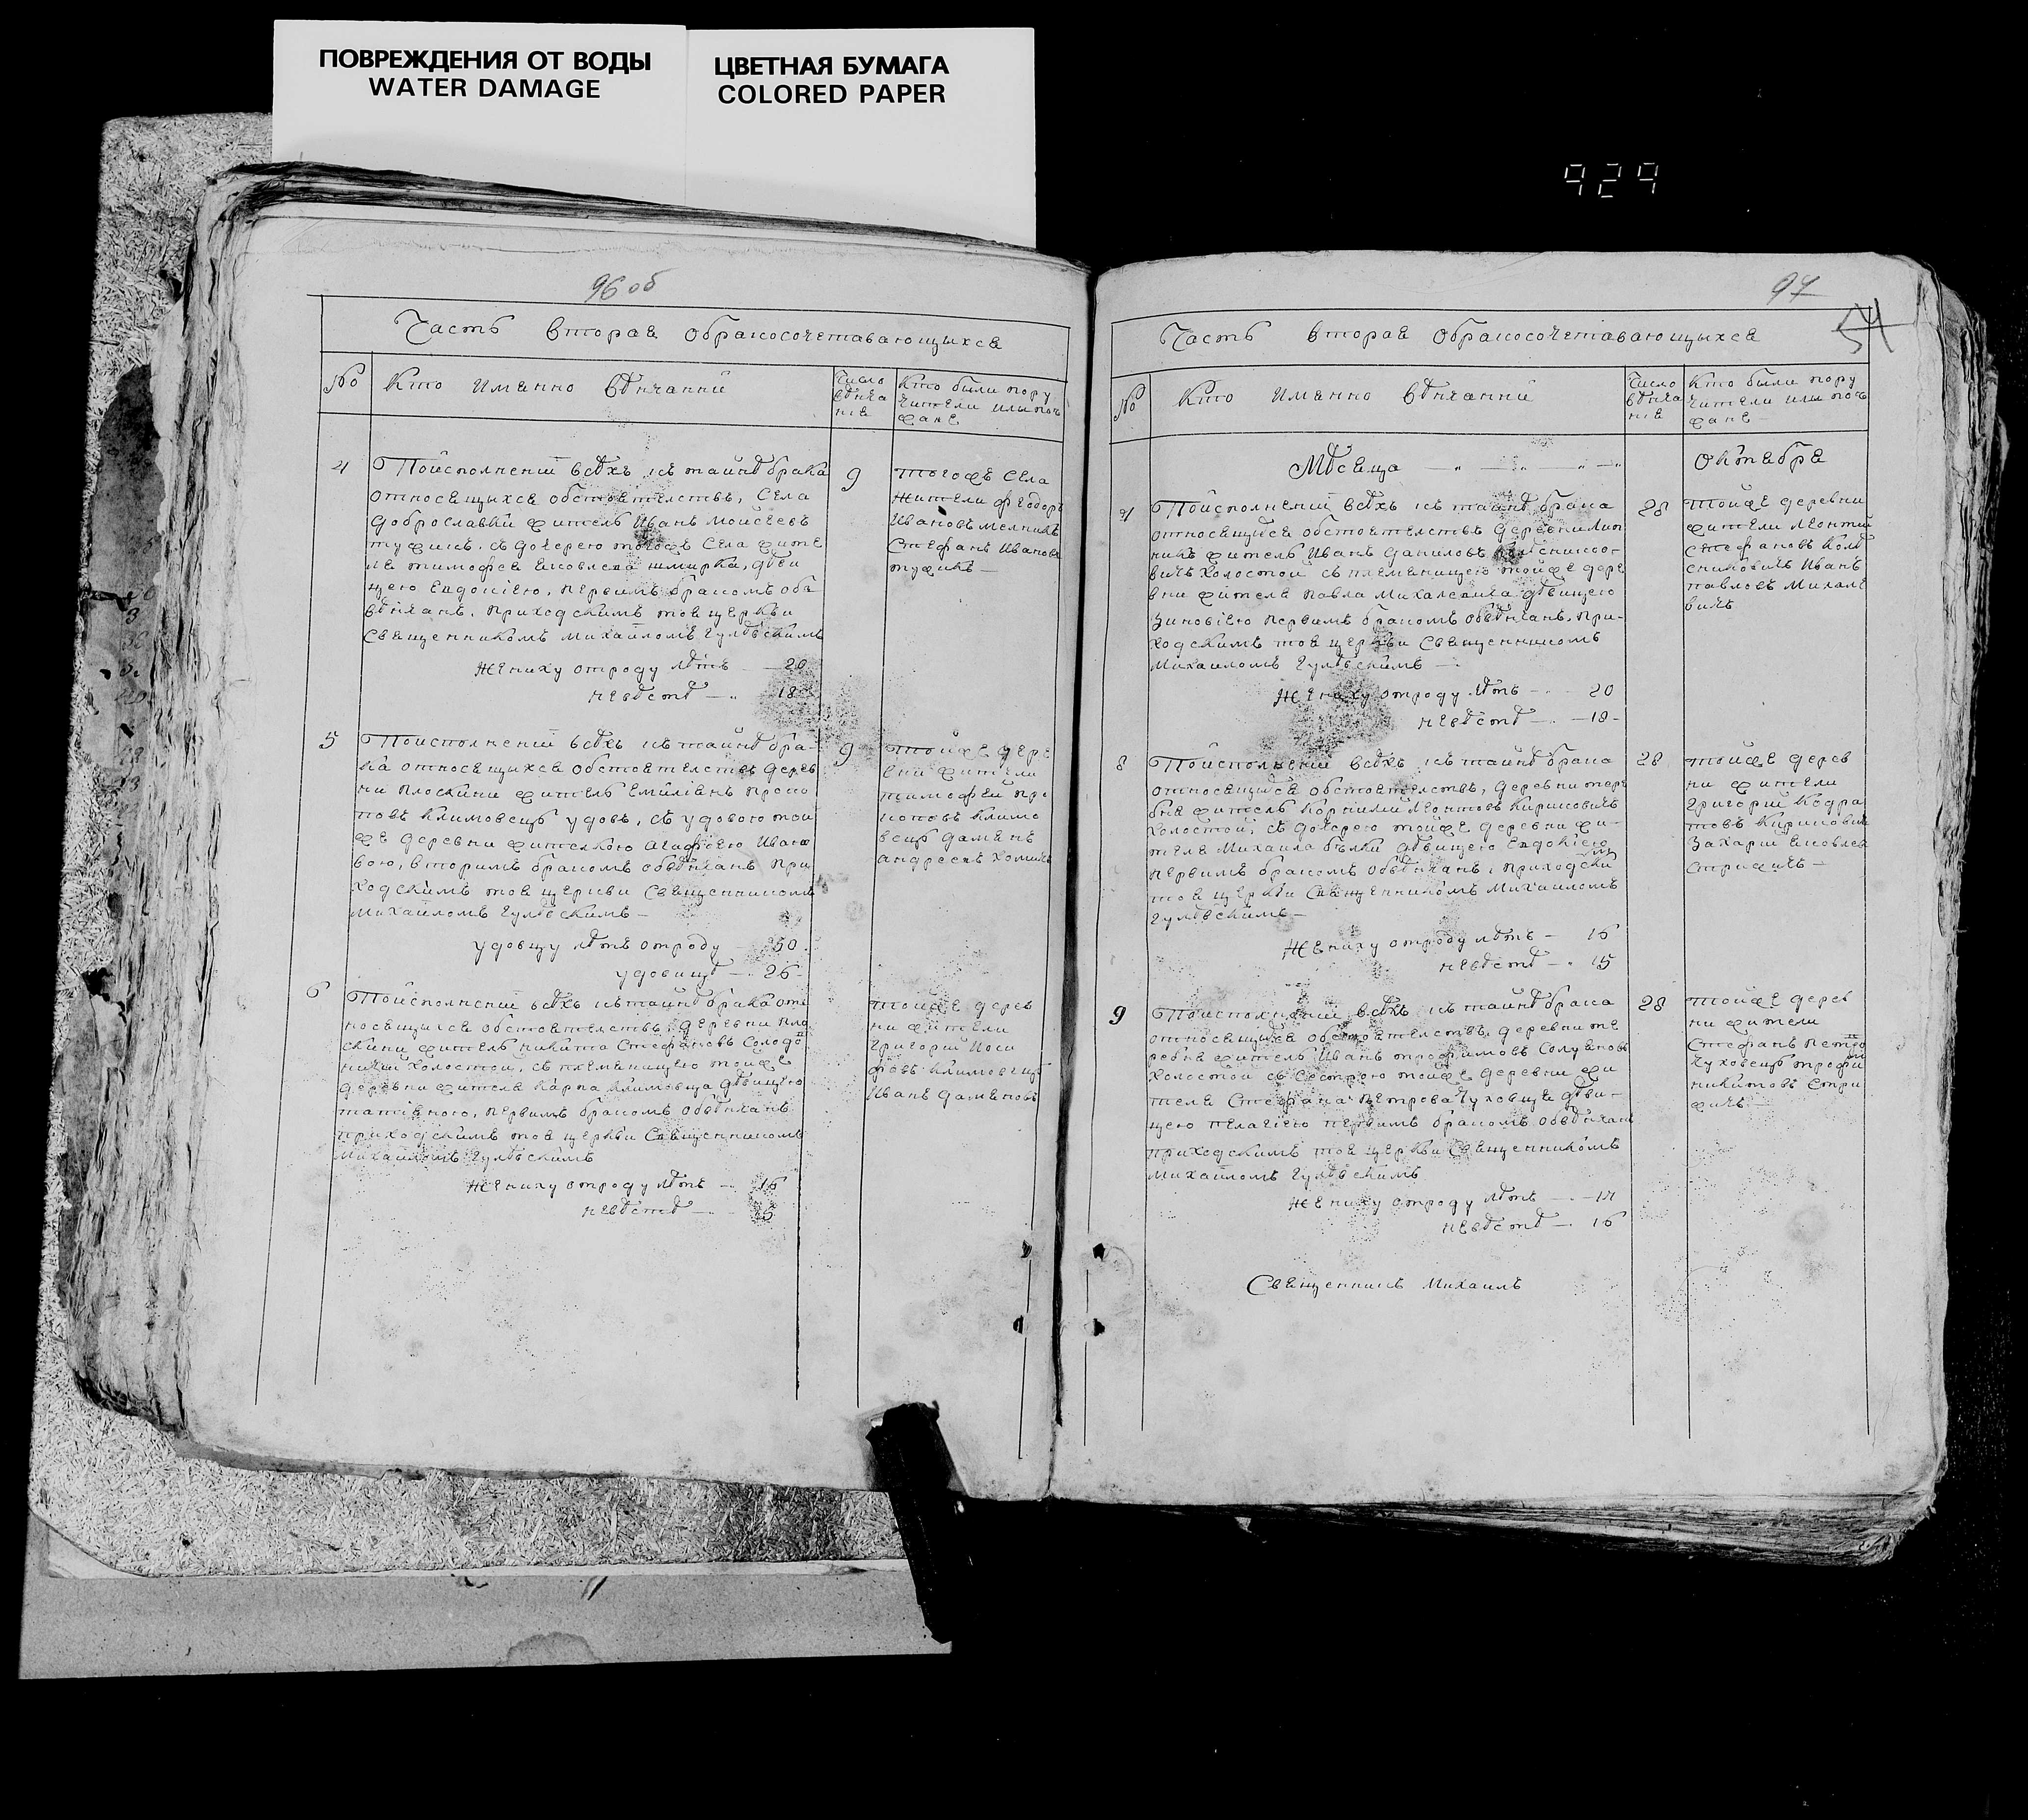 ПОВРЕЖДЕНИЯ ОТ ВОДЫ
WATER DAMAGE
ЦВЕТНАЯ БУМАГА
COLORED PAPER
929
96 об
Часть вторая обракосочетавающыхся
№
Кто именно вѣнчанни
Число вѣнча нія
Кто были пору
чители илы поѣ
жане
4
Поисполненіи всѣхъ къ тайнѣ брака
относящыхся обстоятелствъ, Села
доброславки житель Иванъ Моисеевъ
тужикъ, съ дочерею тогожъ Села жите
ля тимофея Яковлева шмирка, дѣви
цею Евдокіею, первимъ бракомъ обв
ѣнчанъ, приходскимъ тоя церкви
Священникомъ михайломъ
Жениху отроду лѣтъ — 20
невѣстѣ — 18
9
тогожъ Села
жители феодоръ
Ивановъ мелникъ
Стефанъ Ивановъ
тужикъ —
5
Поисполненіи всѣхъ къ тайнѣ бра-
ка относящыхся обстоятелствъ дерев
ни плоскини житель Емиліанъ Проко
повъ Климовецъ удовъ, съ удовою той
же деревни жителкою агафіею Ивано
вою, вторимъ бракомъ обвѣнчанъ при
ходскимъ тоя церкви Священникомъ
михайломъ
удовцу лѣтъ отроду — 50
удовицѣ — 26
9
тойже дере
вни жители
тимофей пр
коповъ климо
вецъ дамянъ
андреевъ хомичъ
6
Поисполненіи всѣхъ къ тайнѣ брака отн
носящихся обстоятелствъ, деревни пло
скини житель никита Стефановъ Солодо
никъ холостой, съ племяницею тойже
деревни жителя карпа климовца дѣвицею
татіаною, первимъ бракомъ обвѣнчанъ
приходскимъ тоя церкви Священникомъ
михайломъ
Жениху отроду лѣтъ — 16
невѣстѣ — 15
тойже дерев
ни жители
григорій Иоси
фовъ климовецъ
Иванъ дамяновъ
97
Часть вторая обракосочетавающыхся
№
Кто именно вѣнчанни
Число вѣнча нія
Кто были пору
чители илы поѣ
жане —
Мѣсяца — — — Октября
7
Поисполненіи всѣхъ къ тайнѣ брака
относящихся обстоятелствъ деревни
житель Иванъ даниловъ
вичъ холостой съ племяницею тойже дере
вни жителя павла михалевича дѣвицею
Зиновіею первимъ бракомъ обвѣнчанъ, при-
ходскимъ тоя церкви Священникомъ
михайломъ
Жениху отроду лѣтъ — 20
невѣстѣ — 18 -
28
тойже деревни
жители леонтій
стефановъ
Иванъ
павловъ михале
вичъ
8
Поисполненіи всѣхъ къ тайнѣ брака
относящихся обстоятелствъ, деревни тере
бня житель корнилий леонтовъ кириковичъ
холостой, съ дочерею тойже деревни жи-
теля михаила бѣлки дѣвицею Евдокіею
первимъ бракомъ обвѣнчанъ, приходски
тоя церкви Священникомъ михайломъ
Жениху отроду лѣтъ — 16
невѣстѣ — 15
28
тойже дерев
ни жители
григорій кодра
товъ кириковичъ
захарій яковлев
стрижичъ —
9
Поисполненіи всѣхъ къ тайнѣ брака
относящыхся обстоятелствъ деревни те
ребня житель Иванъ трофимовъ
холостой съ сестрою тойже деревни жи
теля Стефана петрова чуховца дѣви-
цею пелагіею первимъ бракомъ обвѣнчанъ
приходскимъ тоя церкви Священникомъ
михайломъ
Жениху отроду лѣтъ — 17
невѣстѣ — 16
28
тойже дерев
ни жители
Стефанъ петро
чуховецъ трофи
никитовъ стри
жичъ —
Священникъ Михаилъ